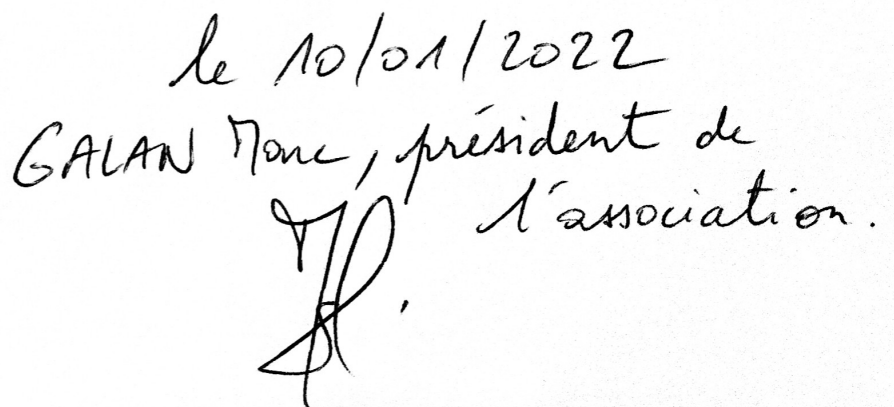 le 10/01/2022
GALAN Marc, président de
l'association.